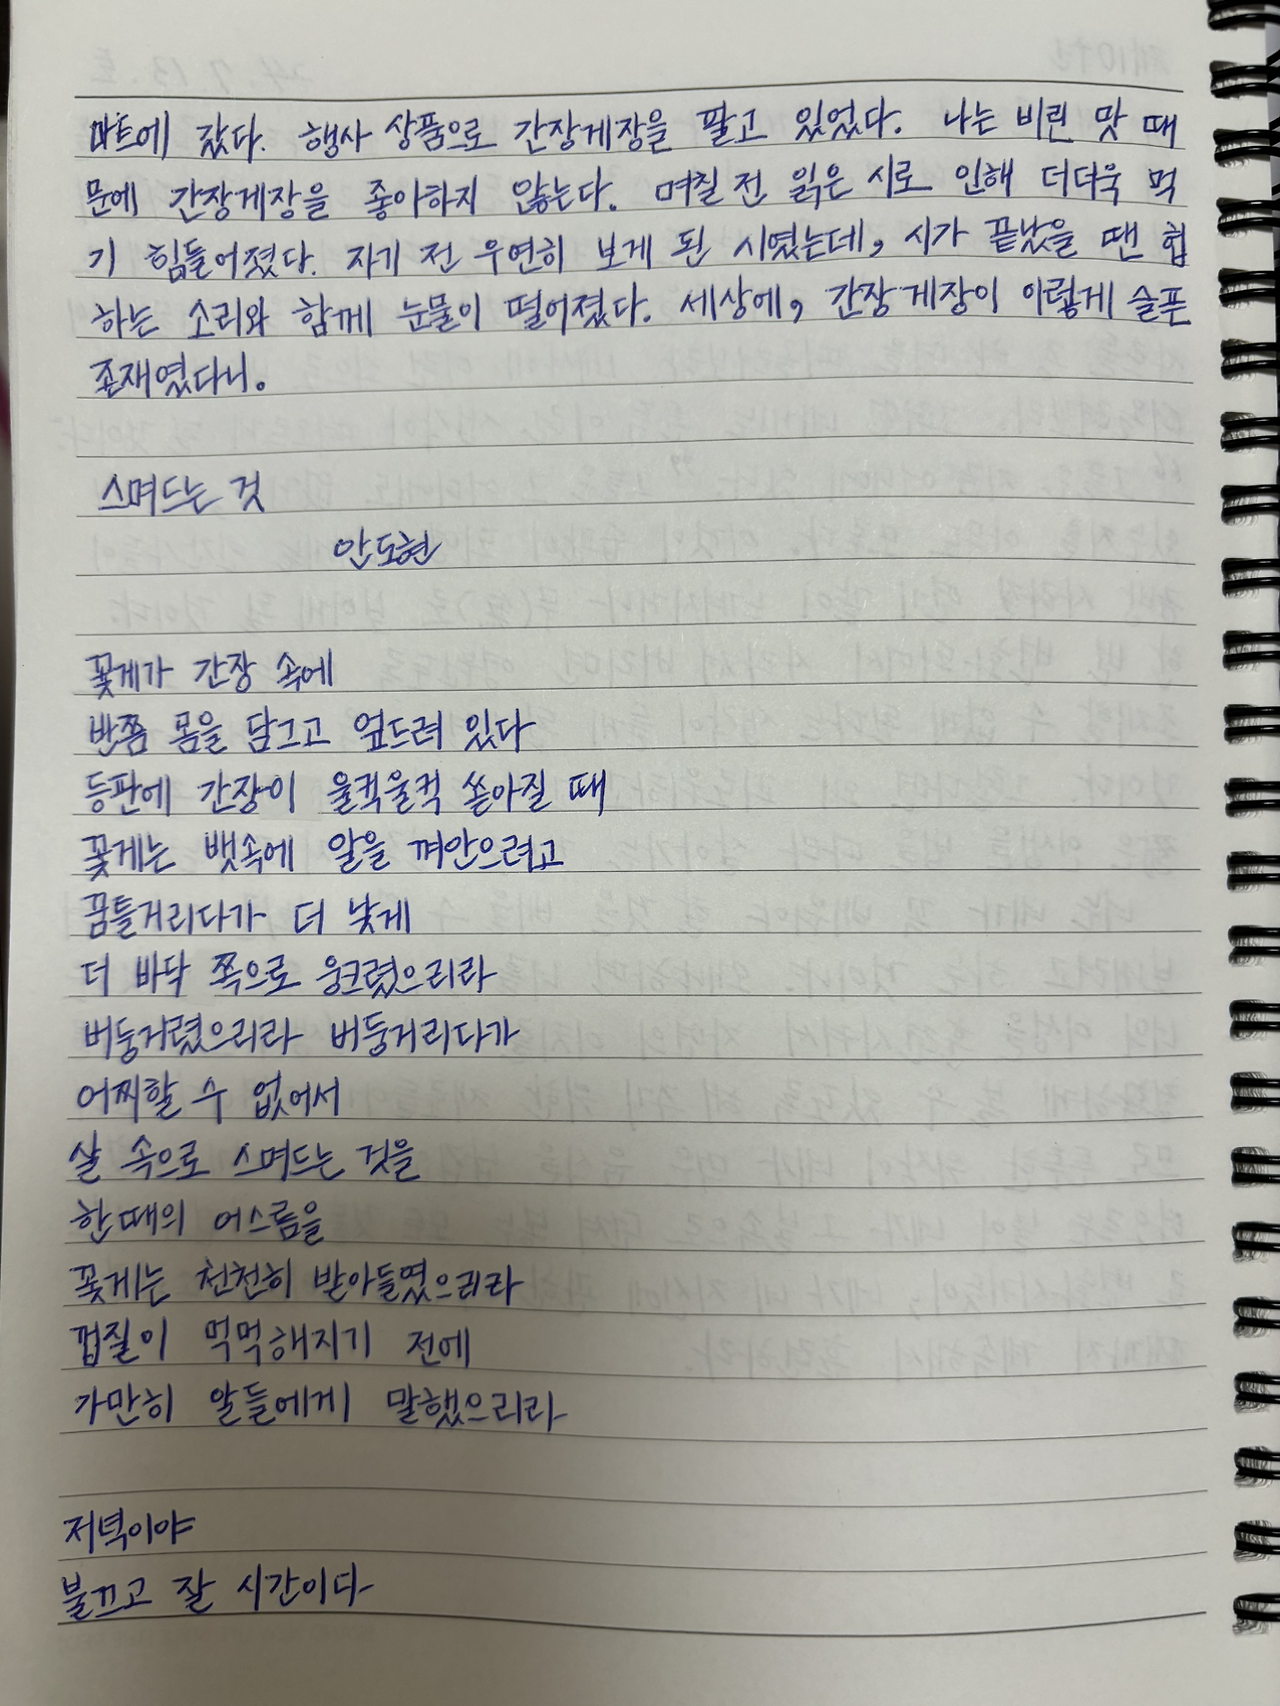 마트에 갔다. 행사 상품으로 간장게장을 팔고 있었다. 나는 비린 맛 때
문에 간장게장을 좋아하지 않는다. 며칠 전 읽은 시로 인해 더더욱 먹
기 힘들어졌다. 자기 전 우연히 보게 된 시였는데, 시가 끝났을 땐 헙
하는 소리와 함께 눈물이 떨어졌다. 세상에, 간장게장이 이렇게 슬픈
존재였다니.
스며드는 것
안도현
꽃게가 간장 속에
반쯤 몸을 담그고 엎드려 있다
등판에 간장이 울컥울컥 쏟아질 때
꽃게는 뱃속에 알을 껴안으려고
꿈틀거리다가 더 낮게
더 바닥 쪽으로 웅크렸으리라
버둥거렸으리라 버둥거리다가
어찌할 수 없어서
살 속으로 스며드는 것을
한때의 어스름을
꽃게는 천천히 받아들였으리라
껍질이 먹먹해지기 전에
가만히 알들에게 말했으리라
저녁이야
불끄고 잘 시간이다